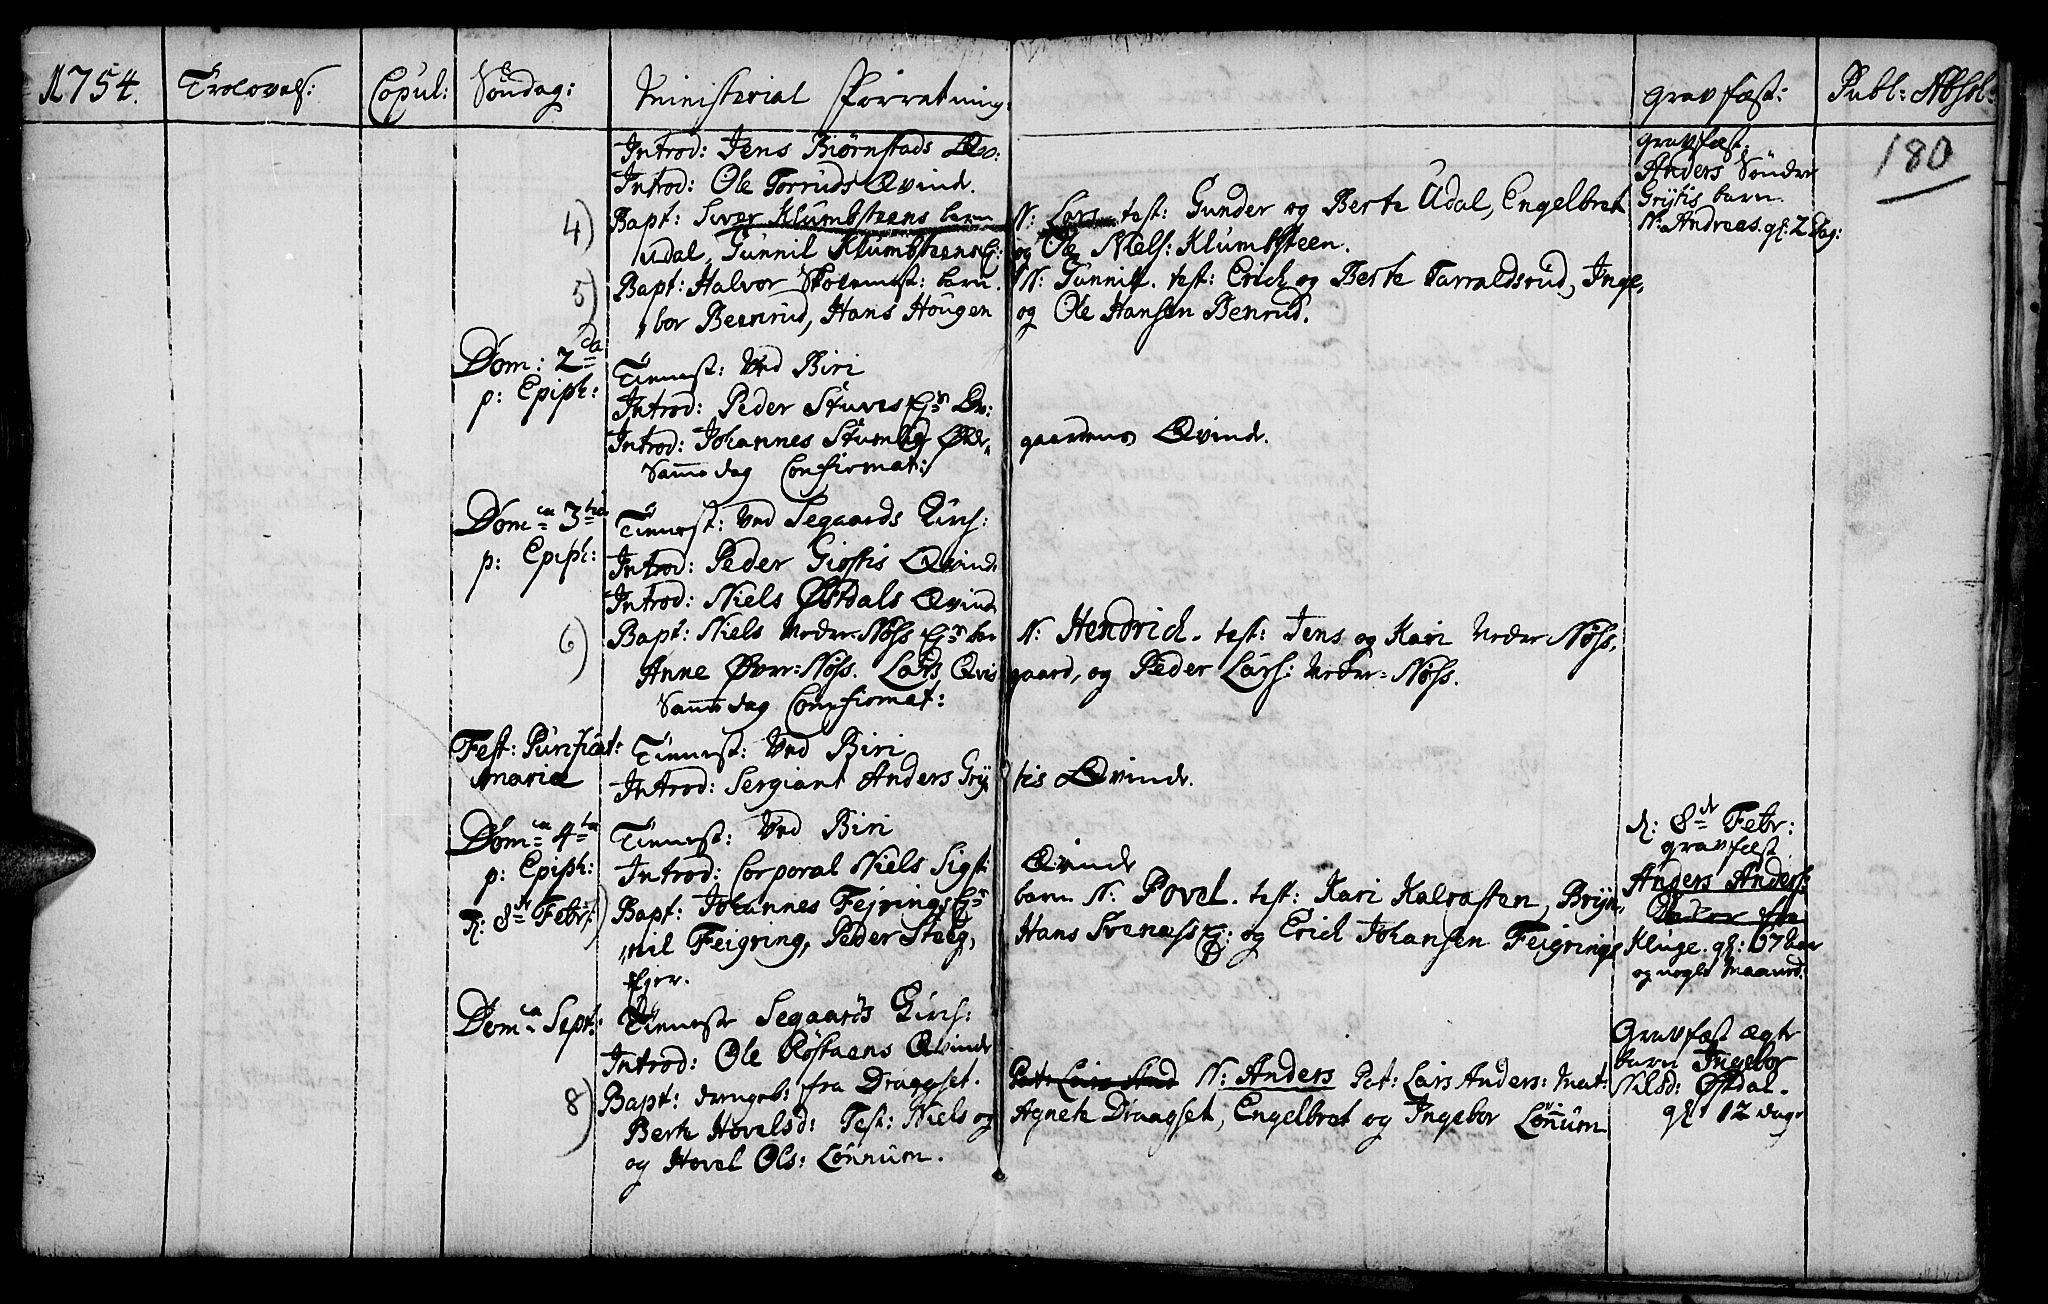 1754. Trolovels: Copul: Søndag: Ministerial Forretning: Gravfæst: Publ: Absol:
180
Introd: Jens Biørnstads Qv:
Introd: Ole Torruds Qvinde.
4) Bapt: Siver Klumbsteens barn N: Lars test: Gunder og Berte Udal, Engelbret
Udal, Gunnil Klumbsteens Ej: og Ole Niels: Klumbsteen.
5) Bapt: Halvor Skolemest: barn. N: Gunnill. test: Erich og Berte Tarraldsrud, Inge,
bor Beenrud, Hans Hougen og Ole Hansen Benrud.
Gravfæst:
Anders Sønder
Grytis barn
N: Andreas. gl: 2 dag:
Dom: 2da
p: Epiph:
Tienest: Ved Biri
Introd: Peder Stuves Ej: Qv:
Introd: Johannes Stumlig Øde,, gaardens Qvinde.
Samme dag Confirmat:
Domca 3tia
p: Epiph:
Tienest: Ved Segaards Kirk:
Introd: Peder Giøstis Qvinde
Introd: Niels Østdals Qvinde
6) Bapt: Niels Neder-Nøss Ej: bar N: Hendrich. test: Jens og Kari Neder Nøss,
Anne Øver-Nøss. Lars Qvis gaard, og Peder Lars: Neder-Nøss.
Samme dag Confirmat:
Fest: Purificat:
Mariæ
Tienest: Ved Biri
Introd: Sergiant Anders Gry, tis Qvinde.
Domca 4ta
p: Epiph:
d: 8de Febr:
Tienest: Ved Biri
Introd: Corporal Niels Sigst: Qvinde
Bapt: Johannes Fejrings Ej: barn N: Povel. test: Kari Kalvasten, Bryn,
nil Feigring, Peder Steeg, Hans Svenæss Ej: og Erich Johansen Feigrings
Ejer.
d: 8de Febr:
gravfæst
Anders Anders:
Kluge. gl: 67 Aar
og nogle Maaned.
Domca Sept:
Tienest Segaards Kirk:
Introd: Ole Røstaens Qvinde
8) Bapt: drengeb: fra Draggset. Pat: Lars And N: Anders Pat: Lars Anders: Mat:
Berte Hovelsd: Test: Niels og Agnete Draagset, Engelbret og Ingebor Lønnum
og Hovel Ols: Lønnum.
Gravfæst ægte
barn Ingebor
Nilsd: Østdal.
gl: 12 dage